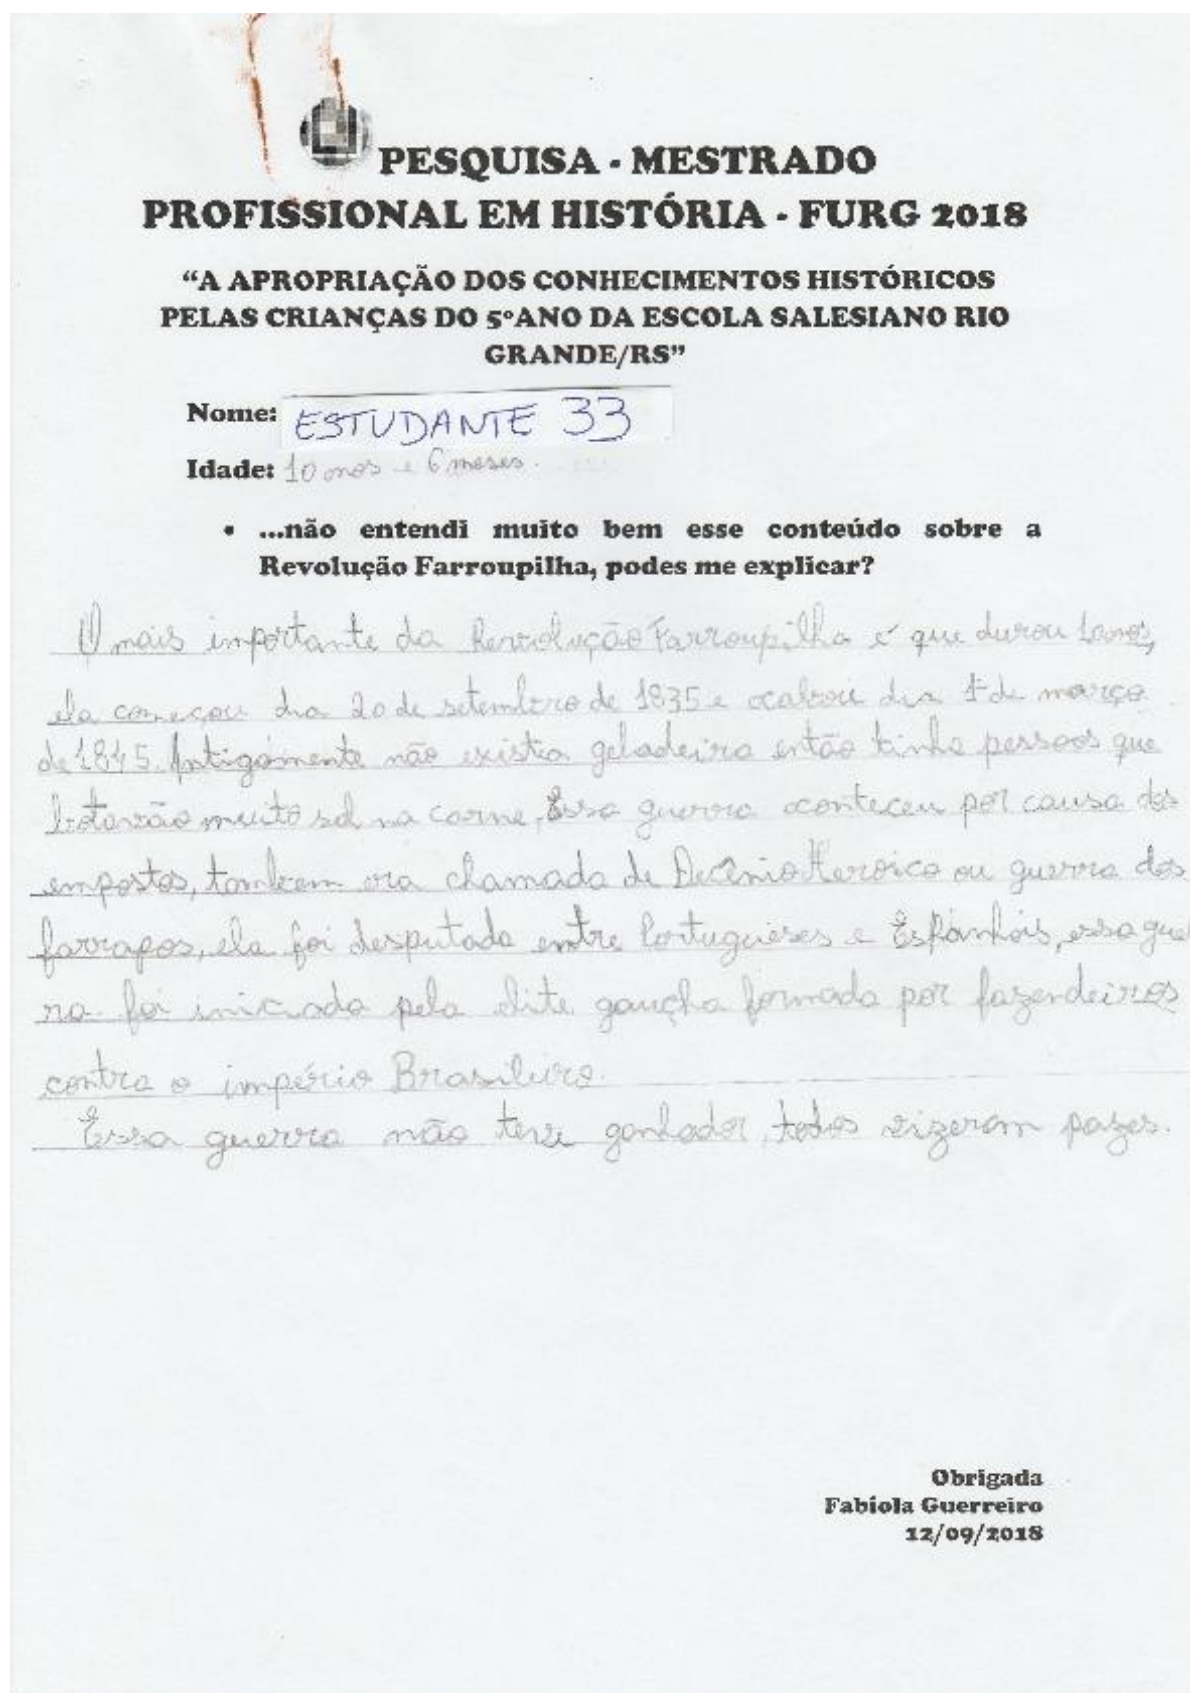 PESQUISA - MESTRADO
PROFISSIONAL EM HISTÓRIA - FURG 2018
“A APROPRIAÇÃO DOS CONHECIMENTOS HISTÓRICOS
PELAS CRIANÇAS DO 5ºANO DA ESCOLA SALESIANO RIO
GRANDE/RS”
Nome: ESTUDANTE 33
Idade: 10 anos e 6 meses.
• ...não entendi muito bem esse conteúdo sobre a
Revolução Farroupilha, podes me explicar?
O mais importante da Revolução Farroupilha é que durou 10 anos,
ela começou dia 20 de setembro de 1835 e acabou dia 1º de março
de 1845. Antigamente não existia geladeira então tinha pessoas que
botavão muito sal na carne, Essa guerra aconteceu por causa dos
empostos, tambem era chamada de Decênio Heroico ou guerra dos
farrapos, ela foi desputada entre Portugueses e Espanhóis, essa gue
ra foi iniciada pela elite gaucha formada por fazendeiros
contra o império Brasileiro.
Essa guerra não teve ganhador, todos fizeram pazes.
Obrigada
Fabiola Guerreiro
12/09/2018